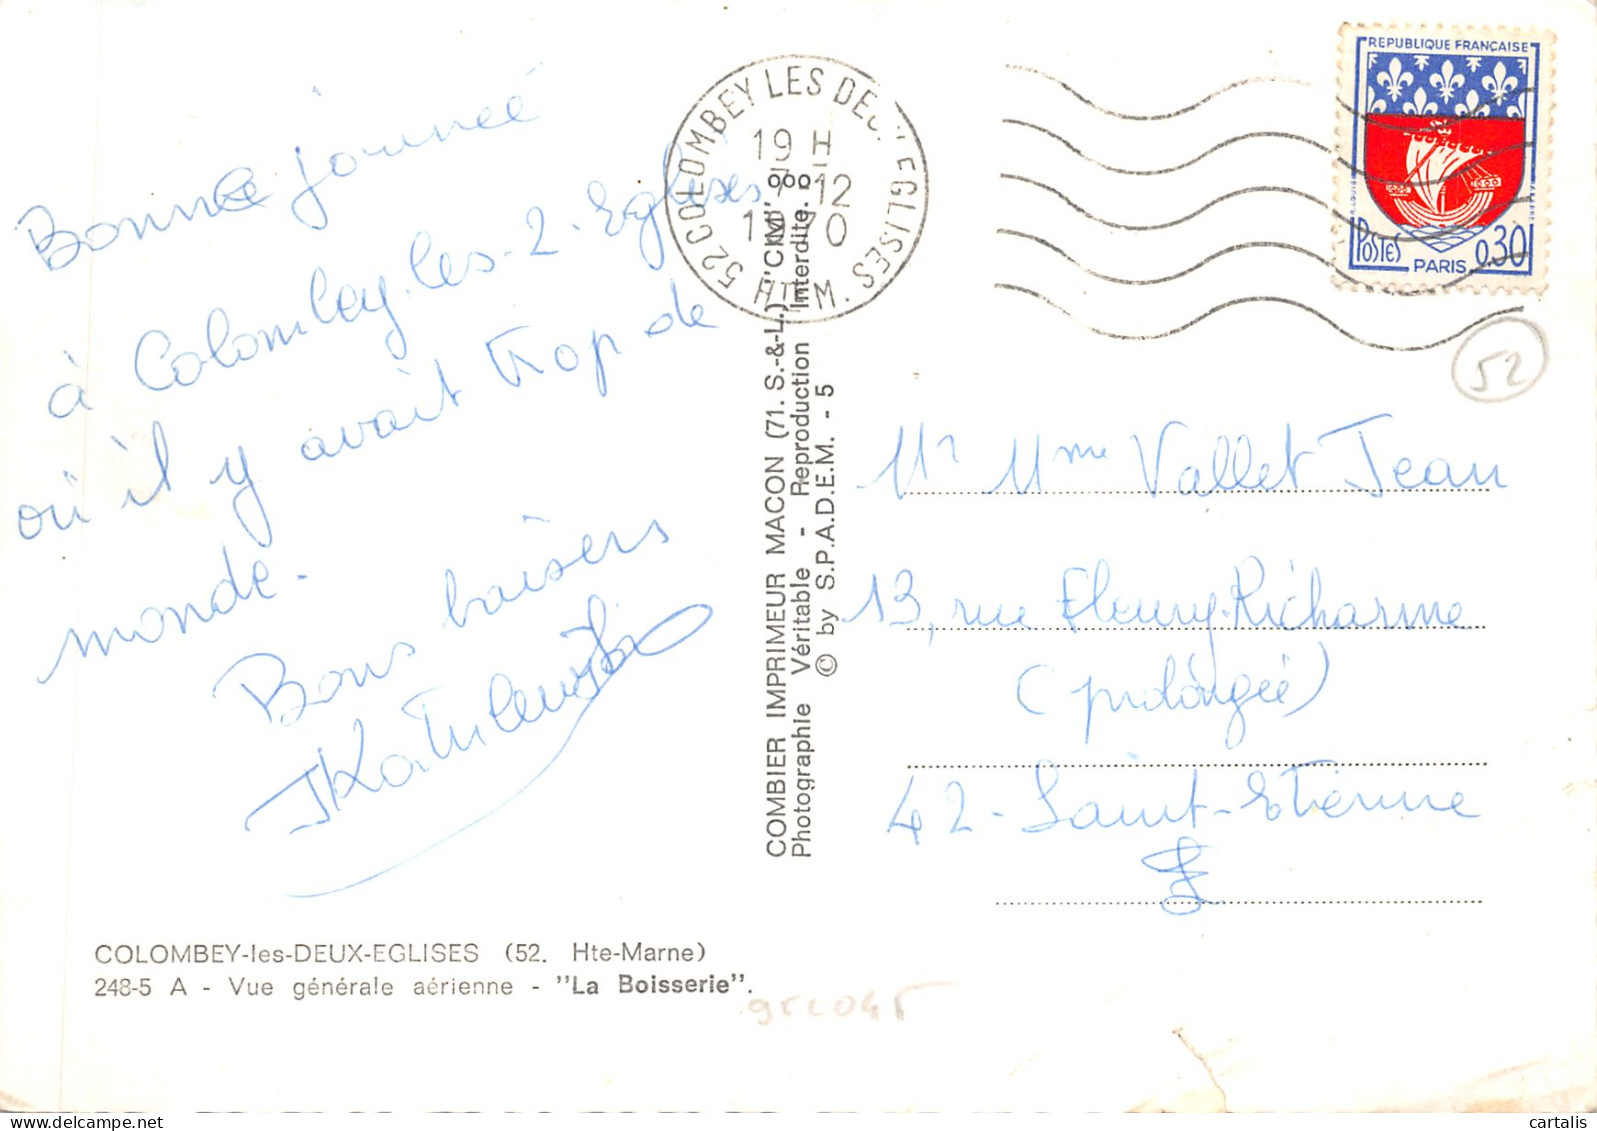 Bonne journée
à Colombey-les-2-Eglises
où il y avait trop de
monde.
Bons baisers
52 COLOMBEY LES DEUX EGLISES
19 H
7-12
1970
HTE M.
REPUBLIQUE FRANÇAISE
POSTES
PARIS
0,30
52
Mr Mme Vallet Jean
13, rue Fleury-Richarme
(prolongée)
42-Saint-Etienne
COMBIER IMPRIMEUR MACON (71. S.-&-L.) "CIM"
Photographie Véritable - Reproduction Interdite.
© by S.P.A.D.E.M. - 5
COLOMBEY-les-DEUX-EGLISES (52. Hte-Marne)
248-5 A - Vue générale aérienne - "La Boisserie".
cartalis